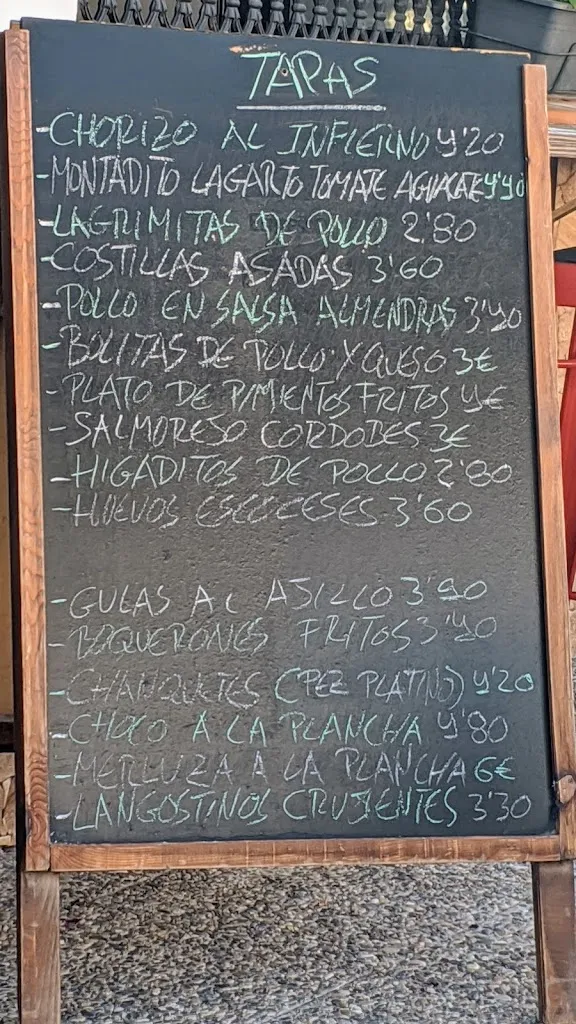 TAPAS
-CHORIZO AL INFIERNO 4'20
-MONTADITO LAGARTO TOMATE AGUACATE 4'40
-LAGRIMITAS DE POLLO 2'80
-COSTILLAS ASADAS 3'60
-POLLO EN SALSA ALMENDRAS 3'40
-BOLITAS DE POLLO Y QUESO 3€
-PLATO DE PIMIENTOS FRITOS 4€
-SALMORESO CORDOBES 3€
-HIGADITOS DE POLLO 2'80
-HUEVOS ESCOCESES 3'60
-GULAS AL AJILLO 3'90
-BOQUERONES FRITOS 3'40
-CHANQUETES (PEZ PLATINO) 4'20
-CHOCO A LA PLANCHA 4'80
-MERLUZA A LA PLANCHA 6€
-LANGOSTINOS CRUJENTES 3'30